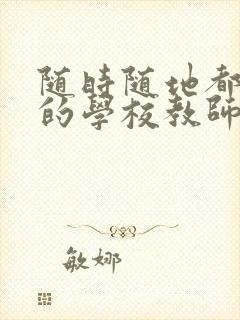 随時随地都
的學校教師
敏娜